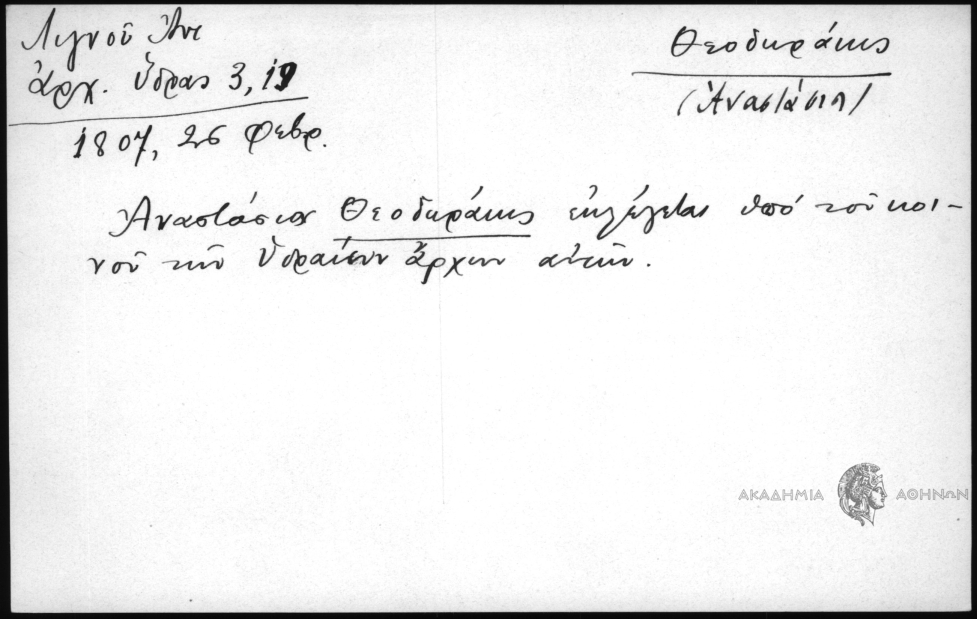 Λιγνοῦ Ἀντ
ἀρχ. Ὕδρας 3, 19
1807, 26 Φεβρ.
Θεοδωράκης
(Ἀναστάσιος)
Ἀναστάσιος Θεοδωράκης ἐκλέγεται ὑπό τοῦ κοι-
νοῦ τῶν Ὑδραίων ἄρχων αὐτῶν.
ΑΚΑΔΗΜΙΑ ΑΘΗΝΩΝ